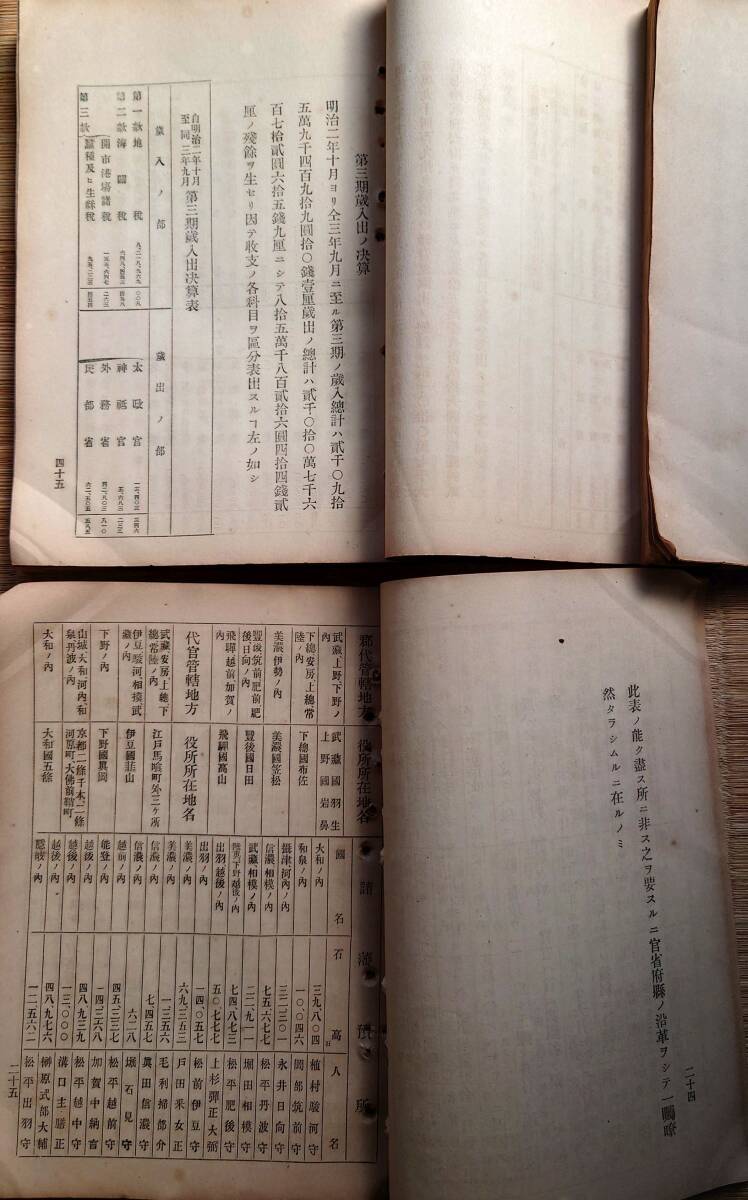 第三期歲入出ノ決算
明治二年十月ヨリ仝三年九月ニ至ル第三期ノ歲入總計ハ貳千〇九拾
五萬九千四百九拾九圓拾〇錢壹厘歲出ノ總計ハ貳千〇拾〇萬七千六
百七拾貳圓六拾五錢九厘ニシテ八拾五萬千八百貳拾六圓四拾四錢貳
厘ノ殘餘ヲ生セリ因テ收支ノ各科目ヲ區分表出スルヿ左ノ如シ
自明治二年十月
至同三年九月
第三期歲入出決算表
歲入ノ部
第一款地稅
第二款海關稅
開市港場諸稅
第三款
蠶種及ヒ生絲稅
歲出ノ部
太政官
神祇官
外務省
民部省
四十五
此表ノ能ク盡ス所ニ非ス之ヲ要スルニ官省府縣ノ沿革ヲシテ一矚瞭
然タラシムルニ在ルノミ
二十四
郡代管轄地方
役所所在地名
武藏、上野、下野ノ內
武藏國羽生
上野國岩鼻
下總、安房、上總、常陸ノ內
下總國布佐
美濃、伊勢ノ內
美濃國笠松
豐後、筑前、肥前、肥後、日向ノ內
豐後國日田
飛驒、越前、加賀ノ內
飛驒國高山
代官管轄地方
役所所在地名
武藏、安房、上總、下總、常陸ノ內
江戶馬喰町外三ケ所
伊豆、駿河、相摸、武藏ノ內
伊豆國韮山
下野ノ內
下野國眞岡
山城、大和、河內、和泉、丹波ノ內
京都二條千本、二條河原町、大佛前鞘町
大和ノ內
大和國五條
諸藩預所
國名
石高
人名
大和ノ內 三九、八〇四 植村駿河守
和泉ノ內 一〇、〇四六 岡部筑前守
攝津河內ノ內 三二、三〇一 永井日向守
信濃ノ內 七五、六七七 松平丹波守
武藏相模ノ內 二二、九一一 堀田相模守
陸奧、下野、越後ノ內 七四、八七三 松平肥後守
出羽越後ノ內 五〇、七七七 上杉彈正大弼
出羽ノ內 一四、〇五七 松前伊豆守
美濃ノ內 六九、三五三 戶田采女正
美濃ノ內 一、三五六 毛利掃部介
信濃ノ內 七、四五七 眞田信濃守
信濃ノ內 六二八 堀石見守
越前ノ內 四五、三三七 松平越前守
能登ノ內 一四、三六八 加賀中納言
越後ノ內 四八、九三九 松平越中守
越後ノ內 一三、〇〇〇 溝口主膳正
越後ノ內 四八、九七六 榊原式部大輔
隱岐ノ內 一二、五六二 松平出羽守
二十五